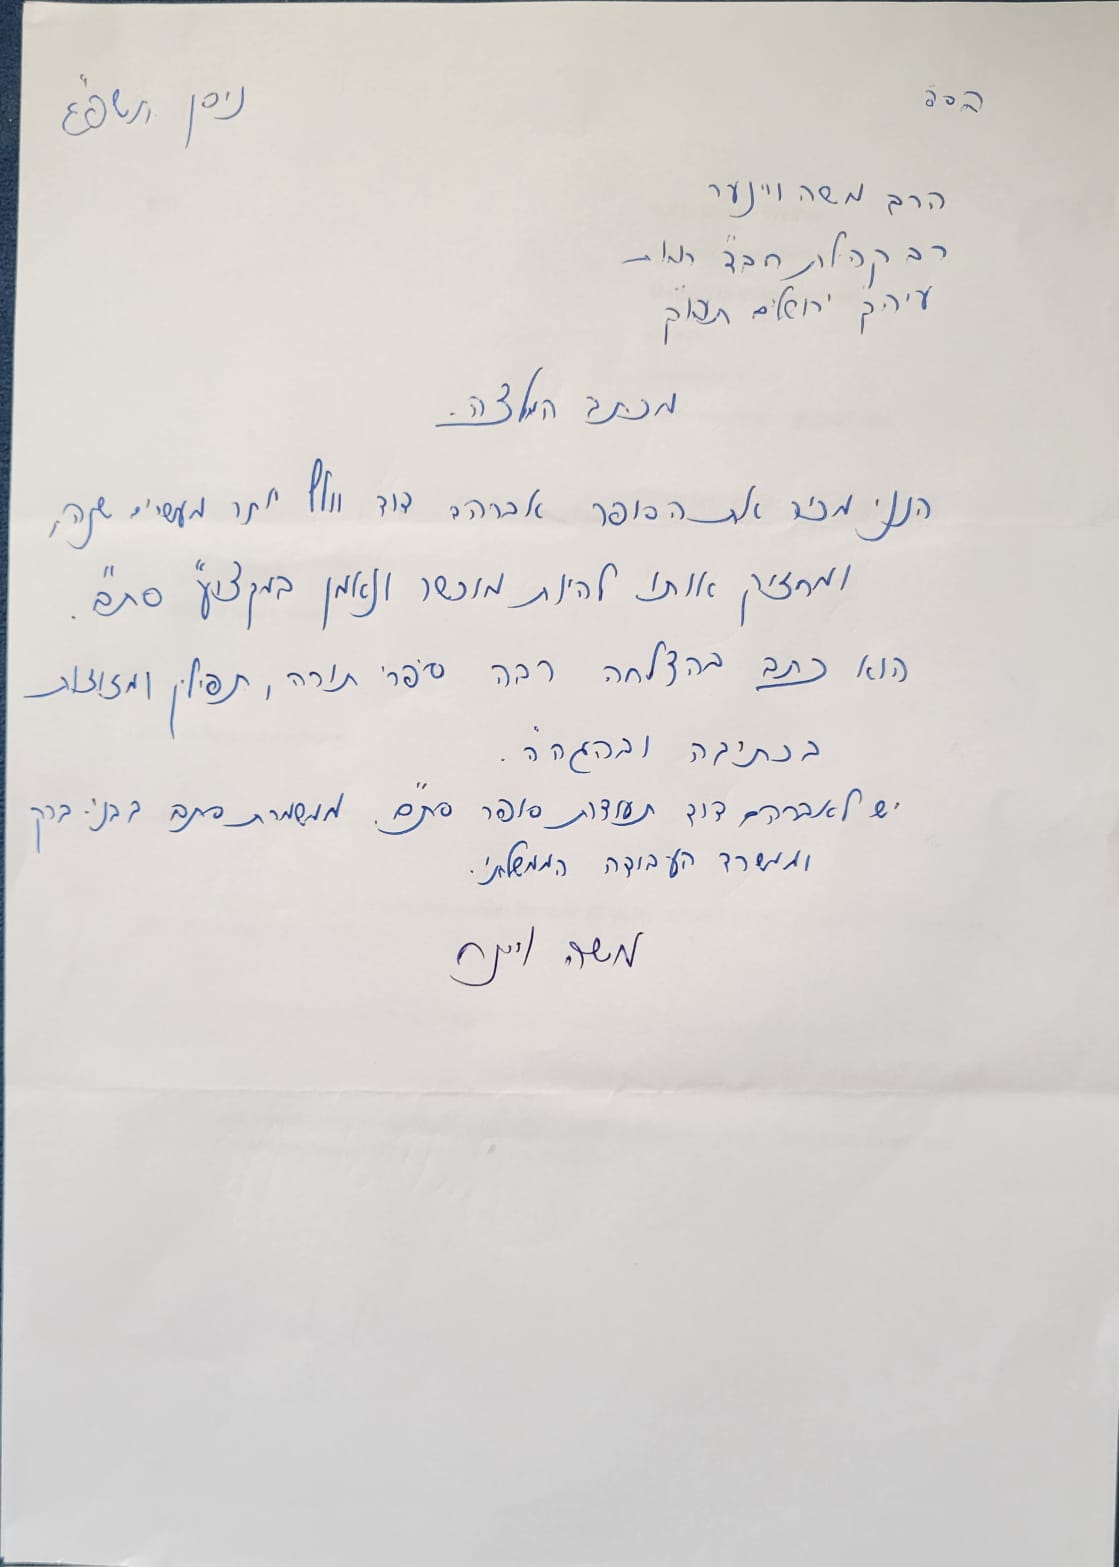 ב"ה
ניסן תשפ"ג
הרב משה ויינער
רב קהילת חב"ד רמות
עיה"ק ירושלים תובב"א
מכתב המלצה.
הנני מכיר את הסופר אברהם דוד וולף יותר מעשרים שנה,
ומחזיק אותו להיות מוכשר ונאמן במקצוע סת"ם.
הוא כתב בהצלחה רבה ספרי תורה, תפילין ומזוזות
בכתיבה ובהגהה.
יש לאברהם דוד תעודות סופר סת"ם. ממשמרת סתם בבני ברק
וממשרד העבודה הממשלתי.
משה וינר